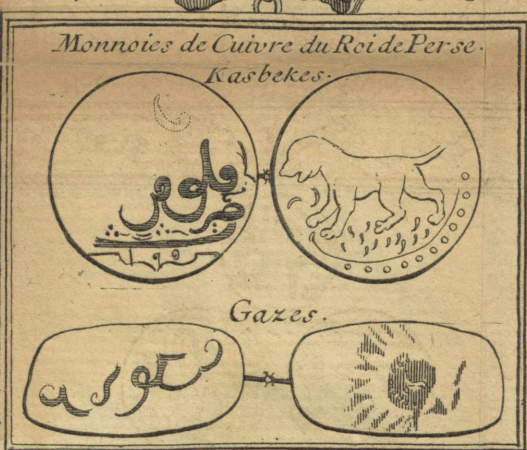 Monnoies de Cuivre du Roi de Perse.
Kasbekes.
فلوس
ضرب
Gazes.